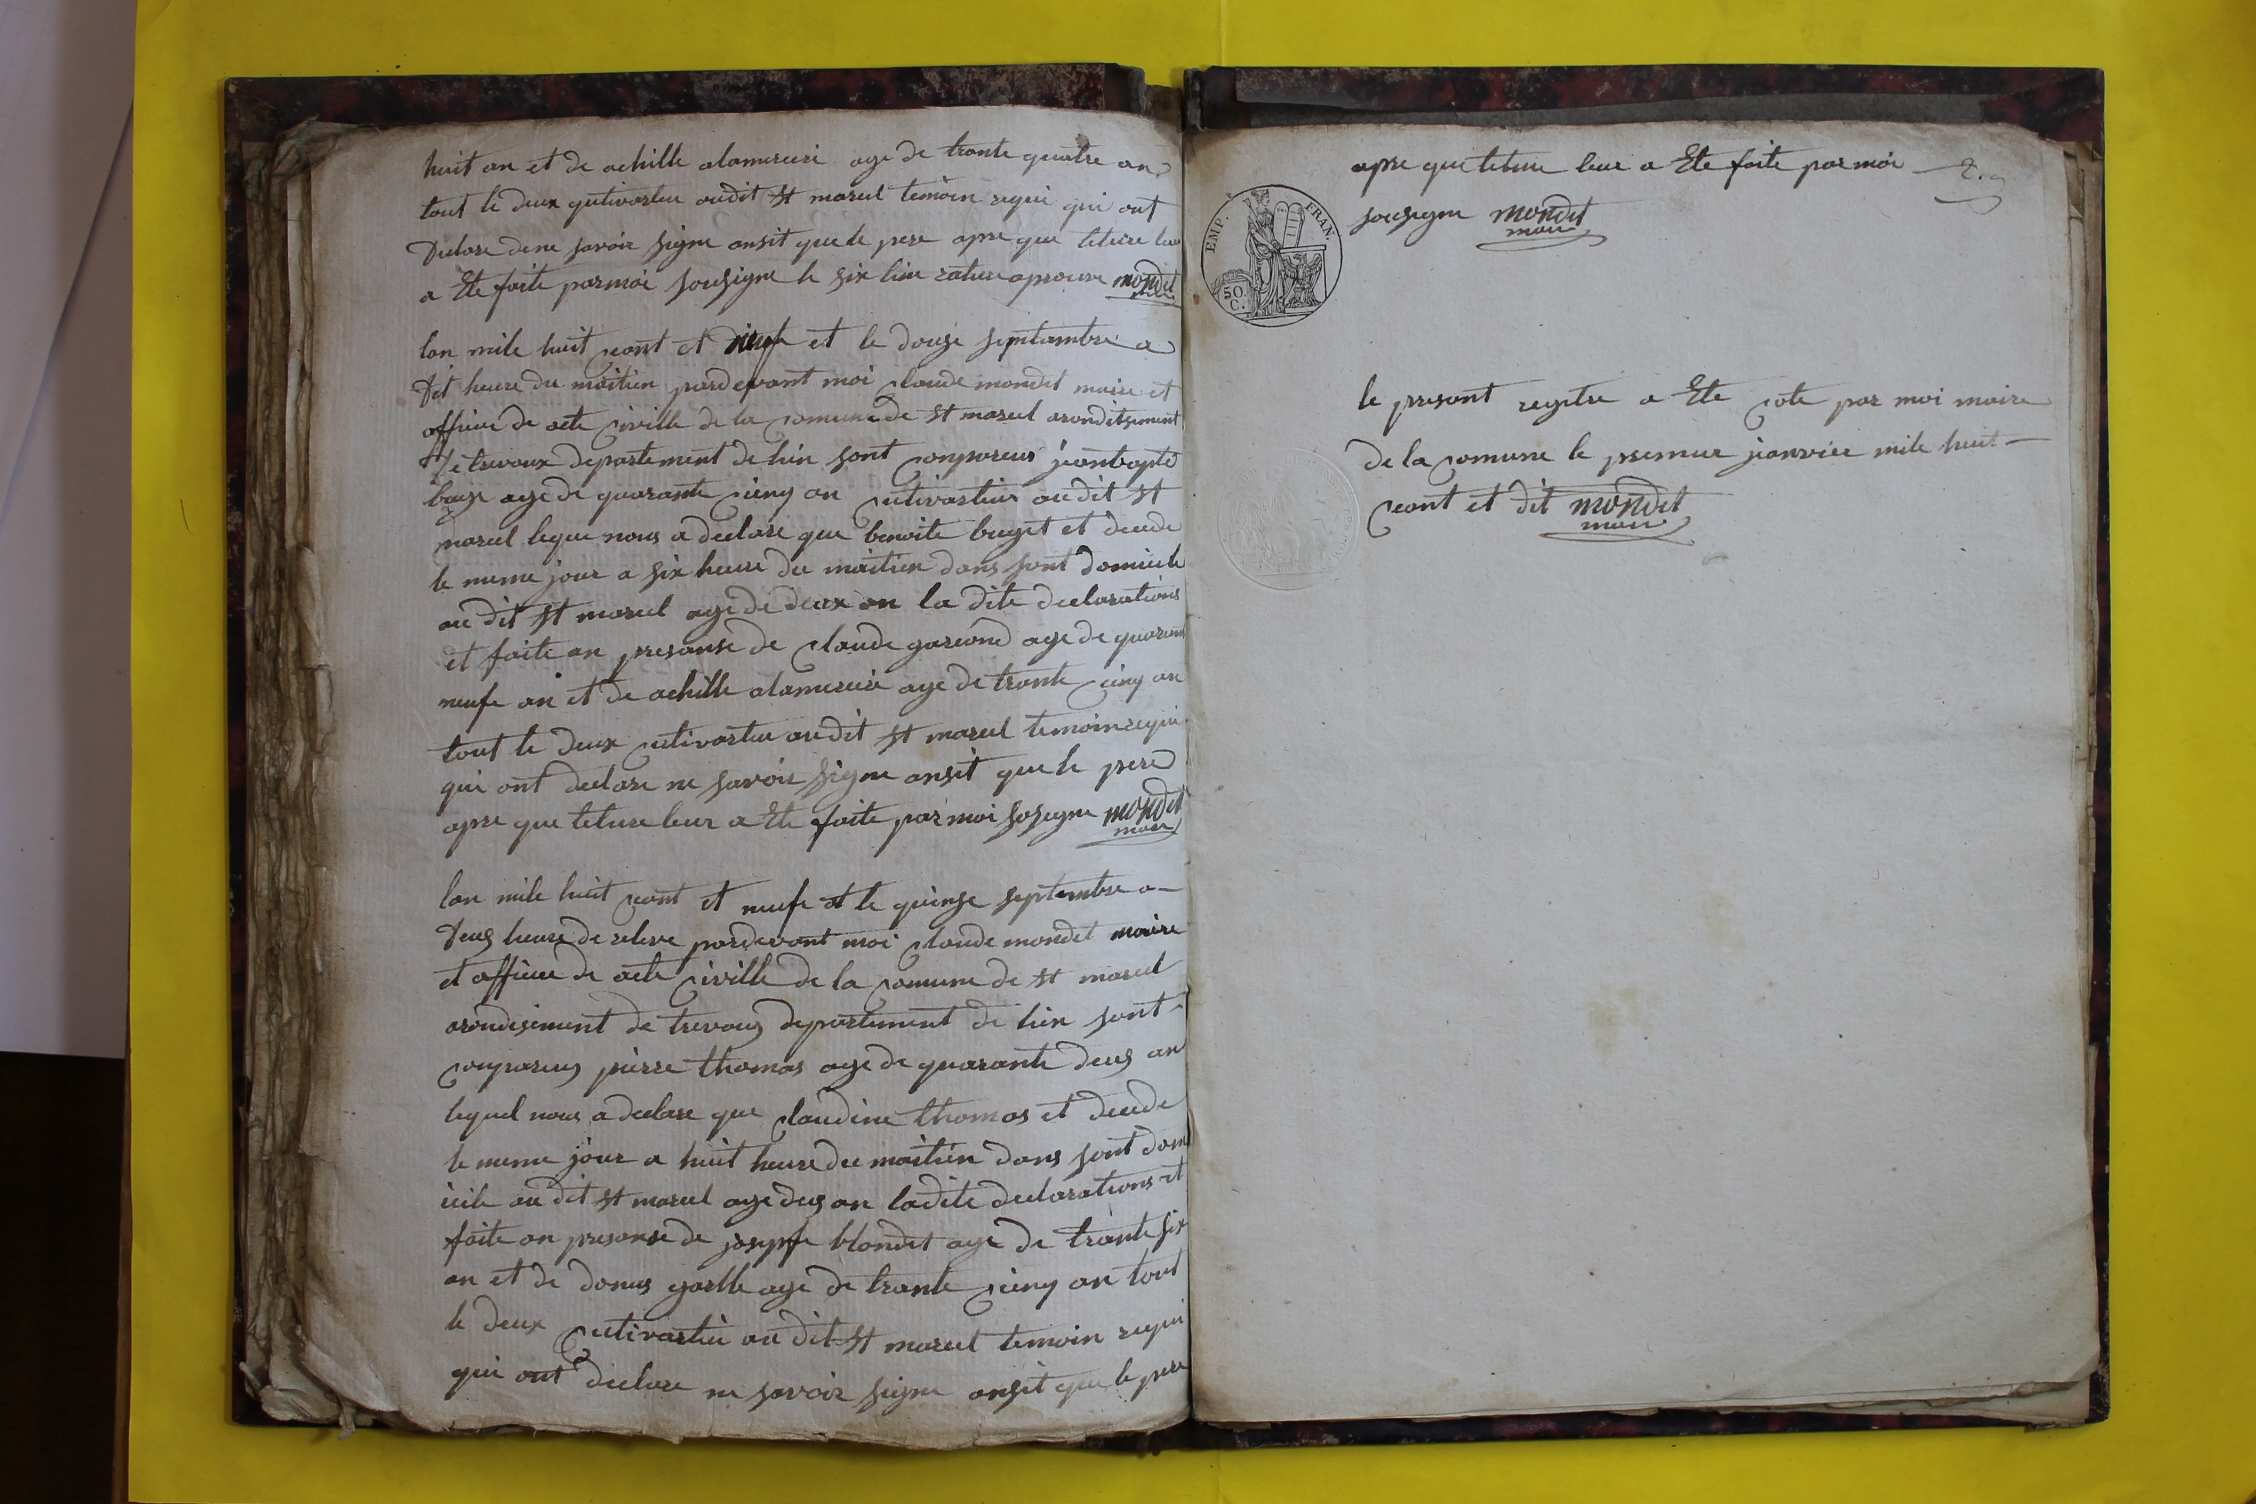 huit an et de achille alamercerie age de trante quatre an
tout le deux qutivateur audit st marcel temoin requi qui ont
declare dene savoir signe ansit que le pere apre que leture leur
a Ete faite par moi sousigne le six line rature aprouve mondet
maire
lan mile huit cent et neuf et le douze septambre a
dit heure du maitien pardevant moi claude mondet maire et
officier de acte civille de la comune de st marcel arondissement
de trevoux departement de lain sont conpareus jeanbapte
age de quarante cinq an cutivateur audit st
marcel leque nous a declare que benoite buget et decede
le meme jour a six heure du maitien dans sont domicile
au dit st marcel age de deux an la dite declarations
et faite an presanse de claude garcond age de quarant
neufe an et de achille alamercerie age de trante cinq an
tout le deux cutivateur audit st marcel temoin requi
qui ont declare ne savoir signe ansit que le pere
apre que leture leur a Ete faite par moi sosigne mondet
maire
lan mile huit cent et neufe et le quinze septembre a
deus heure de releve pardevant moi claude mondet maire
et officier de acte civille de la comune de st marcel
arondisement de trevous departement de lain sont
conpareus pierre thomas age de quarante deus an
lequel nous a declare que claudine thomas et decede
le meme jour a huit heure du maitien dans sont dom
icile au dit st marcel age deus an ladite declarations et
faite an presanse de josepfe blondet age de trante six
an et de age de trante cinq an tout
le deux cutivateur au dit st marcel temoin requi
qui ont declare ne savoir signe ansit que le pere
apre que leture leur a Ete faite par moi
sousigne mondet
maire
EMP. FRAN.
50
C.
le presant regitre a Ete cote par moi maire
de la comune le premier janvier mile huit
cent et dit mondet
maire